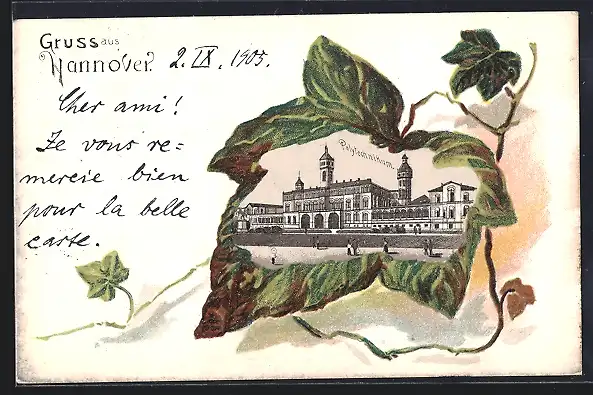 Gruss aus
Hannover. 2. IX. 1905.
Cher ami!
Je vous re=
mercie bien
pour la belle
carte.
Polytechnikum.